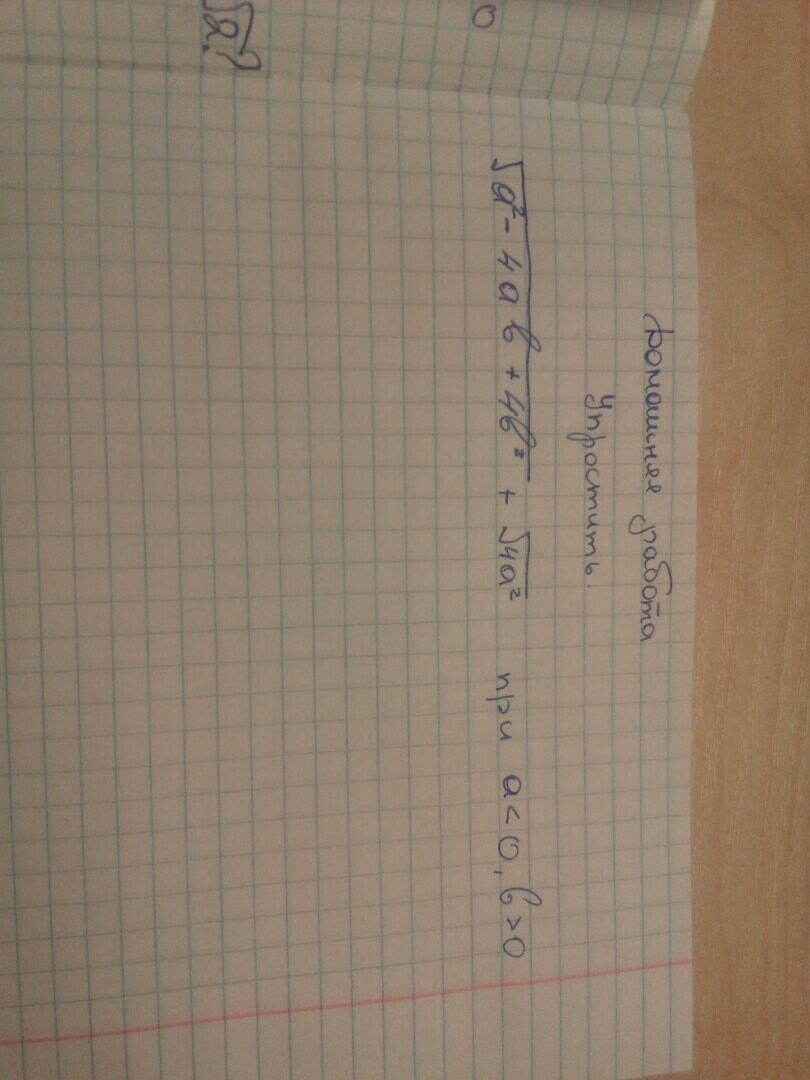 Домашняя работа
Упростить.
√a² - 4ab + 4b² + √4a² при a < 0, b > 0
0
√2?